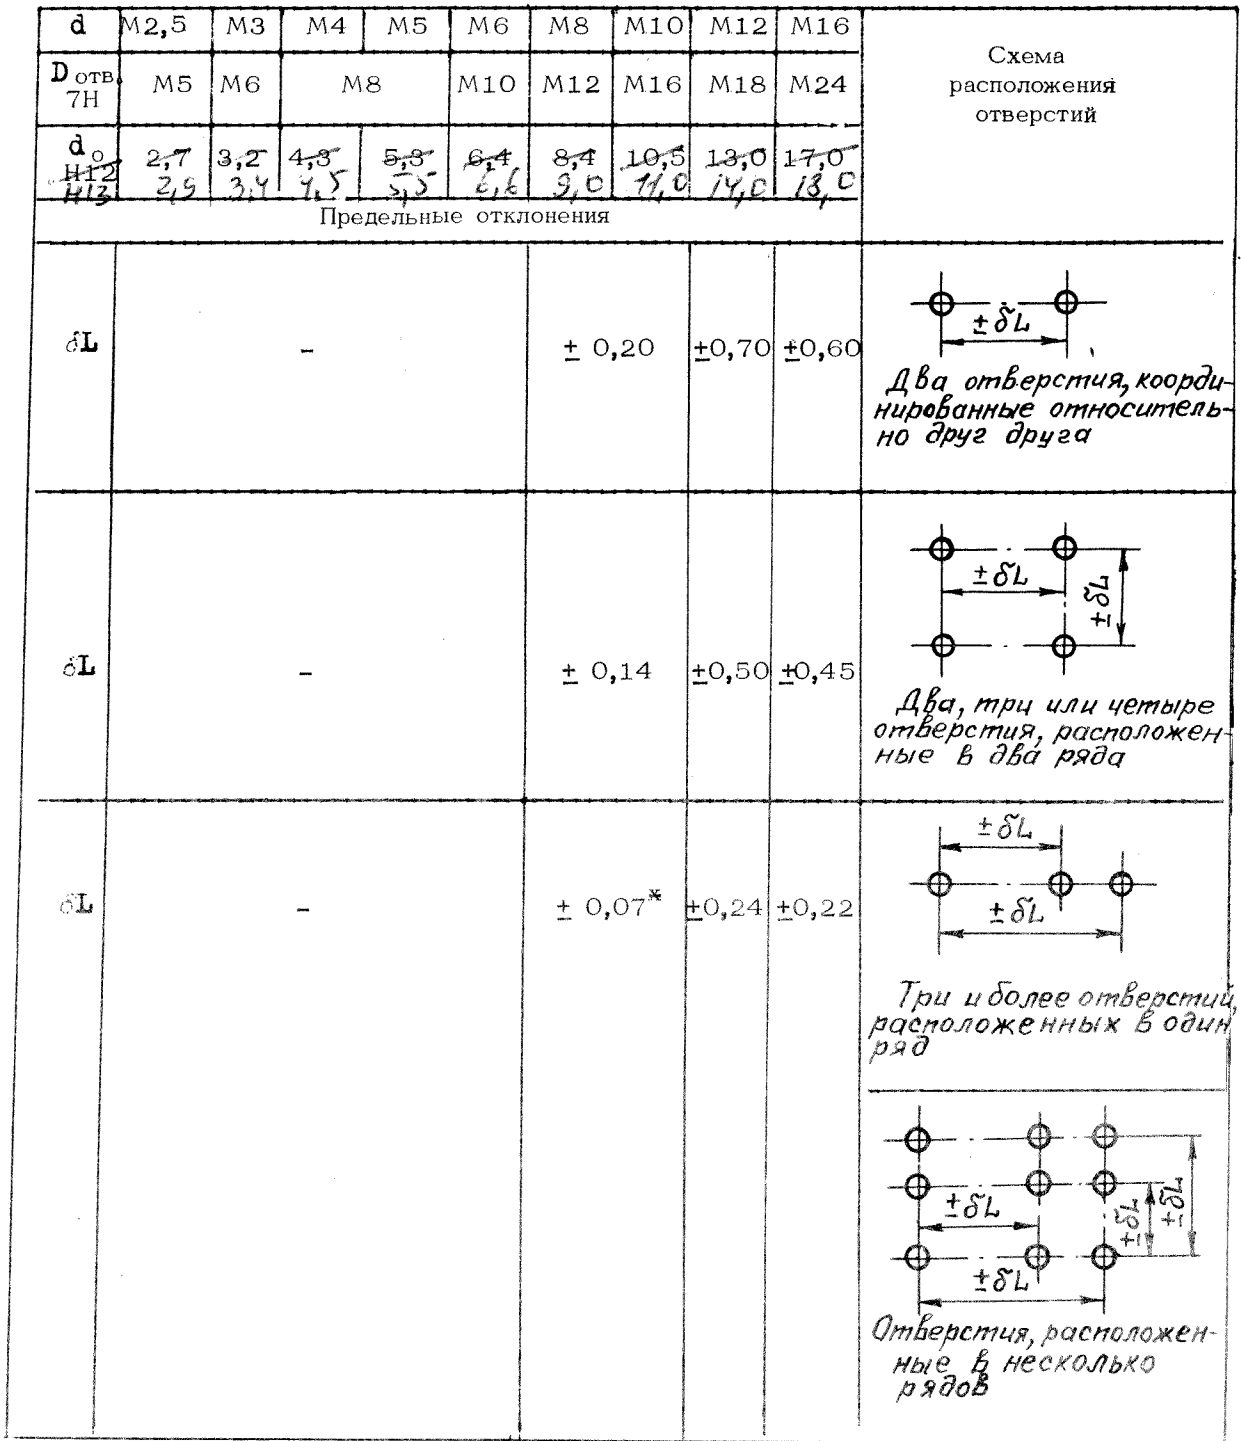 d М2,5 М3 М4 М5 М6 М8 М10 М12 М16
Схема
расположения
отверстий
D отв.
7Н
М5 М6 М8 М10 М12 М16 М18 М24
d о
Н12
Н13
2,7 3,2 4,3 5,3 6,4 8,4 10,5 13,0 17,0
2,9 3,4 4,5 5,5 6,6 9,0 11,0 14,0 18,0
Предельные отклонения
δL - ± 0,20 ±0,70 ±0,60
±δL
Два отверстия, коорди-
нированные относитель-
но друг друга
δL - ± 0,14 ±0,50 ±0,45
±δL
±δL
Два, три или четыре
отверстия, расположен-
ные в два ряда
δL - ± 0,07* ±0,24 ±0,22
±δL
±δL
Три и более отверстий,
расположенных в один
ряд
±δL
±δL
±δL
±δL
Отверстия, расположен-
ные в несколько
рядов